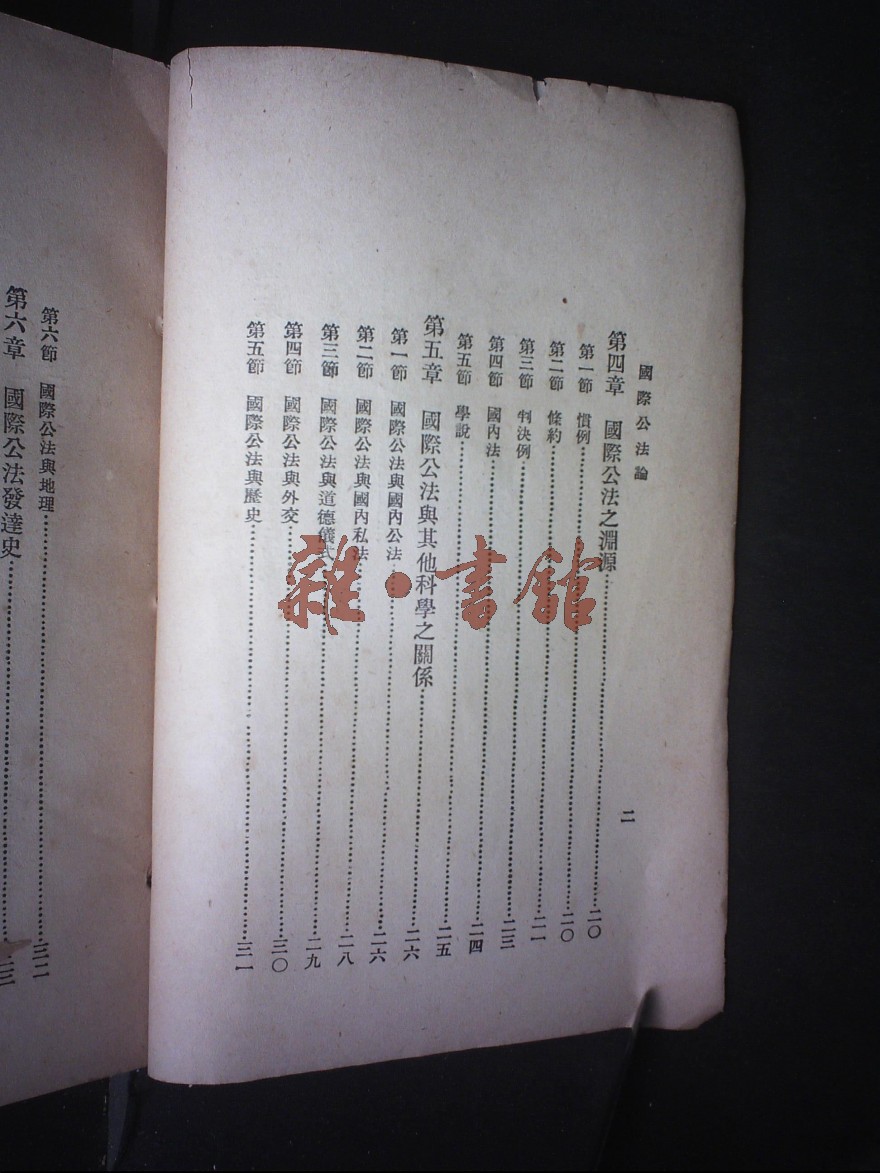 國際公法論
二
第四章 國際公法之淵源……二〇
第一節 慣例……二〇
第二節 條約……二一
第三節 判決例……二三
第四節 國內法……二四
第五節 學說……二五
第五章 國際公法與其他科學之關係……二六
第一節 國際公法與國內公法……二六
第二節 國際公法與國內私法……二八
第三節 國際公法與道德儀式……二九
第四節 國際公法與外交……三〇
第五節 國際公法與歷史……三一
第六節 國際公法與地理……三二
第六章 國際公法發達史……
雜·書館